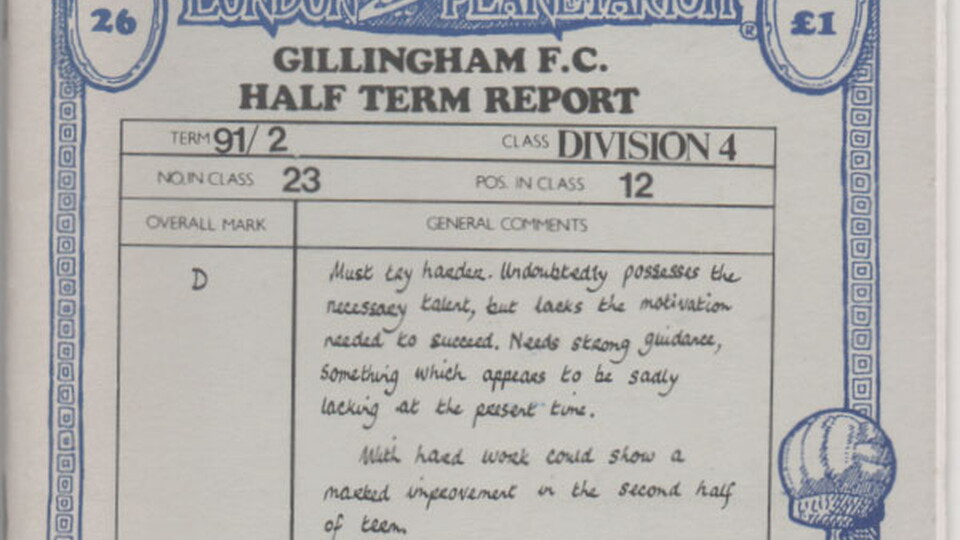 26 LONDON PLANETARIUM ® £1
GILLINGHAM F.C.
HALF TERM REPORT
TERM 91/2 CLASS DIVISION 4
NO.IN CLASS 23 POS. IN CLASS 12
OVERALL MARK GENERAL COMMENTS
D Must try harder. Undoubtedly possesses the
necessary talent, but lacks the motivation
needed to succeed. Needs strong guidance,
something which appears to be sadly
lacking at the present time.
With hard work could show a
marked improvement in the second half
of term.